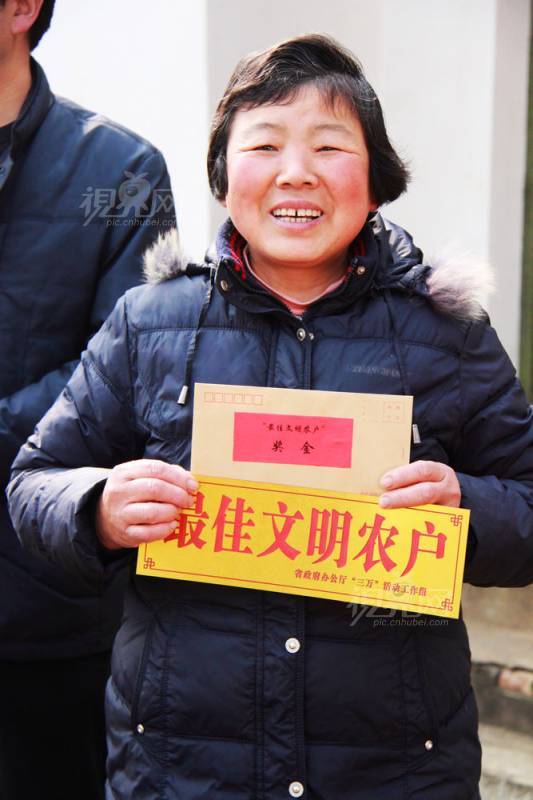 視界网
pic.cnhubei.com
"最佳文明农户"
奖金
最佳文明农户
省政府办公厅"三万"活动工作组
視界网
pic.cnhubei.com